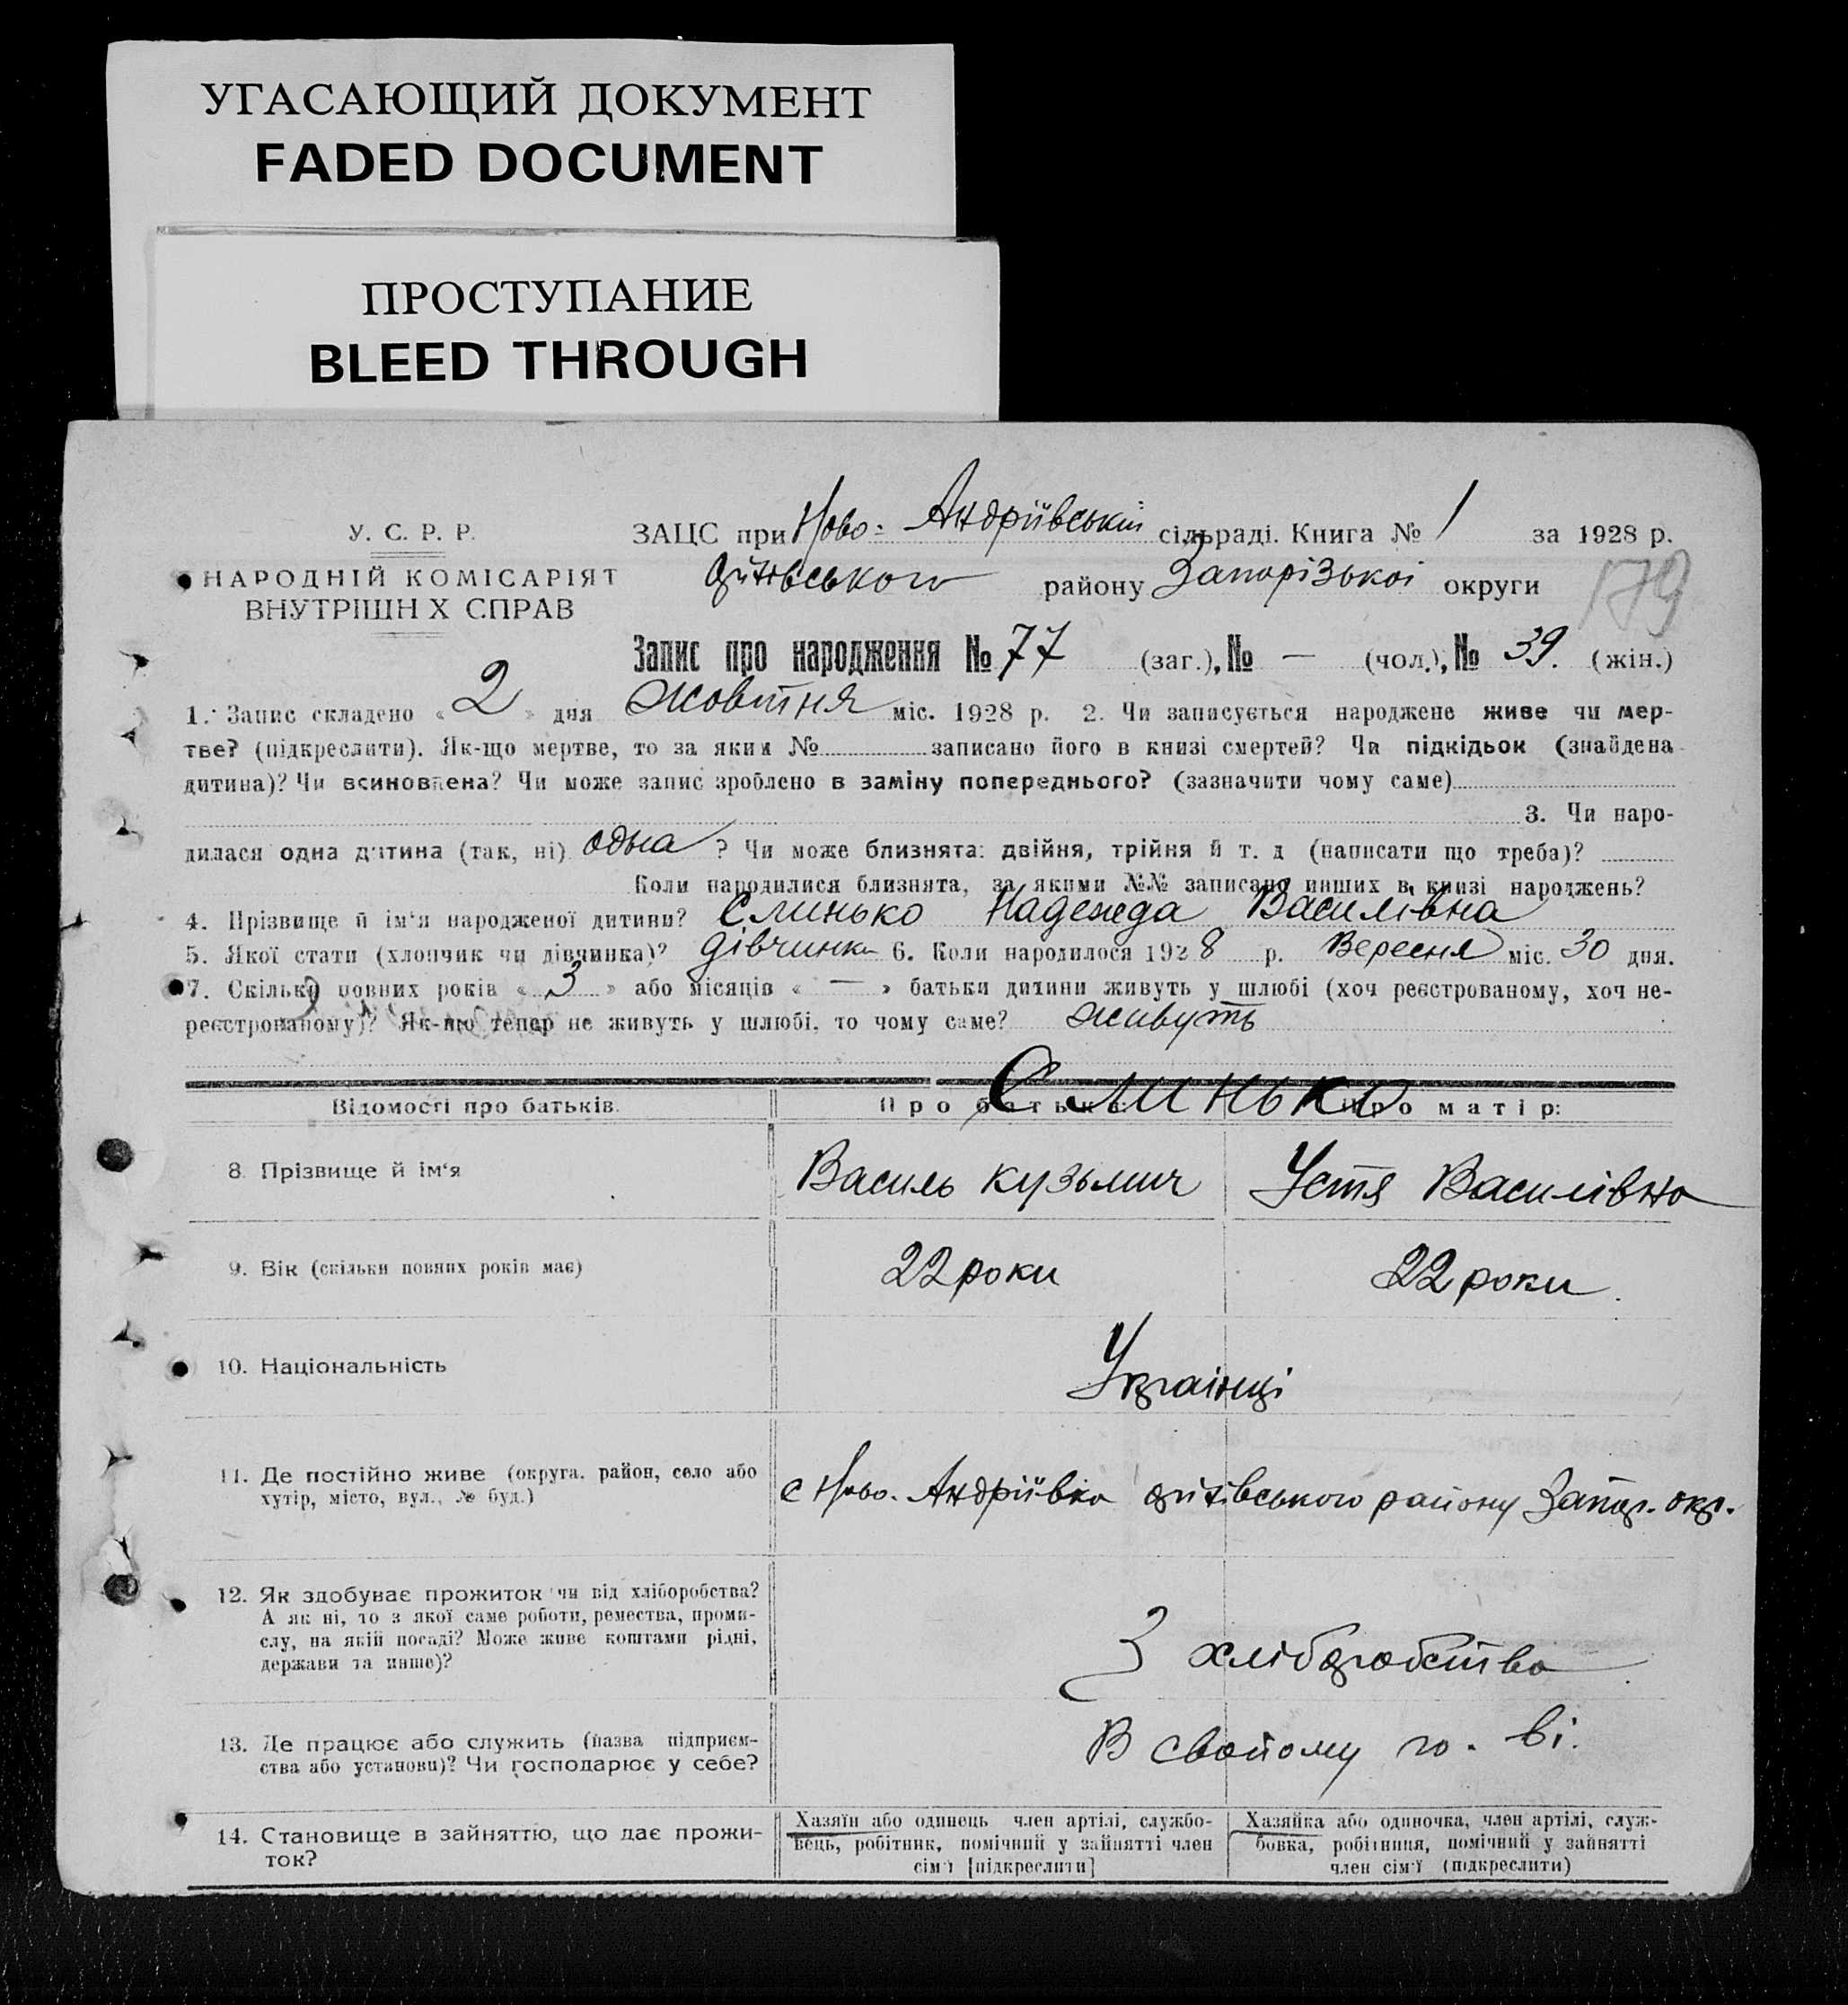 УГАСАЮЩИЙ ДОКУМЕНТ
FADED DOCUMENT
ПРОСТУПАНИЕ
BLEED THROUGH
У. С. Р. Р.
НАРОДНІЙ КОМІСАРІЯТ
ВНУТРІШН Х СПРАВ
ЗАЦС при Ново-Андріївській сільраді. Книга № 1 за 1928 р.
району Запорізької округи
179
Запис про народження № 77 (заг.), № — (чол.), № 39. (жін.)
1. Запис складено « 2 » дня жовтня міс. 1928 р. 2. Чи записується народжене живе чи мер-
тве? (підкреслити). Як-що мертве, то за яким № записано його в книзі смертей? Чи підкідьок (знайдена
дитина)? Чи всиновлена? Чи може запис зроблено в заміну попереднього? (зазначити чому саме)
3. Чи наро-
дилася одна дитина (так, ні) одна ? Чи може близнята: двійня, трійня й т. д (написати що треба)?
Коли народилися близнята, за якими №№ записано инших в книзі народжень?
4. Прізвище й ім'я народженої дитини? Слинько Надежда Василівна
5. Якої стати (хлопчик чи дівчинка)? дівчинка 6. Коли народилося 1928 р. Вересня міс. 30 дня.
7. Скільки повних років « 3 » або місяців « — » батьки дитини живуть у шлюбі (хоч реєстрованому, хоч не-
реєстрованому)? Як-що тепер не живуть у шлюбі, то чому саме? живуть
Слинько
Відомості про батьків. Про батька: Про матір:
8. Прізвище й ім'я Василь Кузьмич Устя Василівна
9. Вік (скільки повних років має) 22 роки 22 роки.
10. Національність Українці
11. Де постійно живе (округа, район, село або
хутір, місто, вул., № буд.)
с Ново-Андріївка району Запор. окр.
12. Як здобуває прожиток чи від хліборобства?
А як ні, то з якої саме роботи, ремества, проми-
слу, на якій посаді? Може живе коштами рідні,
держави та инше)?
З хліборобства
13. Де працює або служить (назва підприєм-
ства або установи)? Чи господарює у себе?
В свойому го-ві.
14. Становище в зайняттю, що дає прожи-
ток?
Хазяїн або одинець член артілі, службо-
вець, робітник, помічний у зайнятті член
сім'ї [підкреслити]
Хазяйка або одиночка, член артілі, служ-
бовка, робітниця, помічний у зайнятті
член сім'ї (підкреслити)